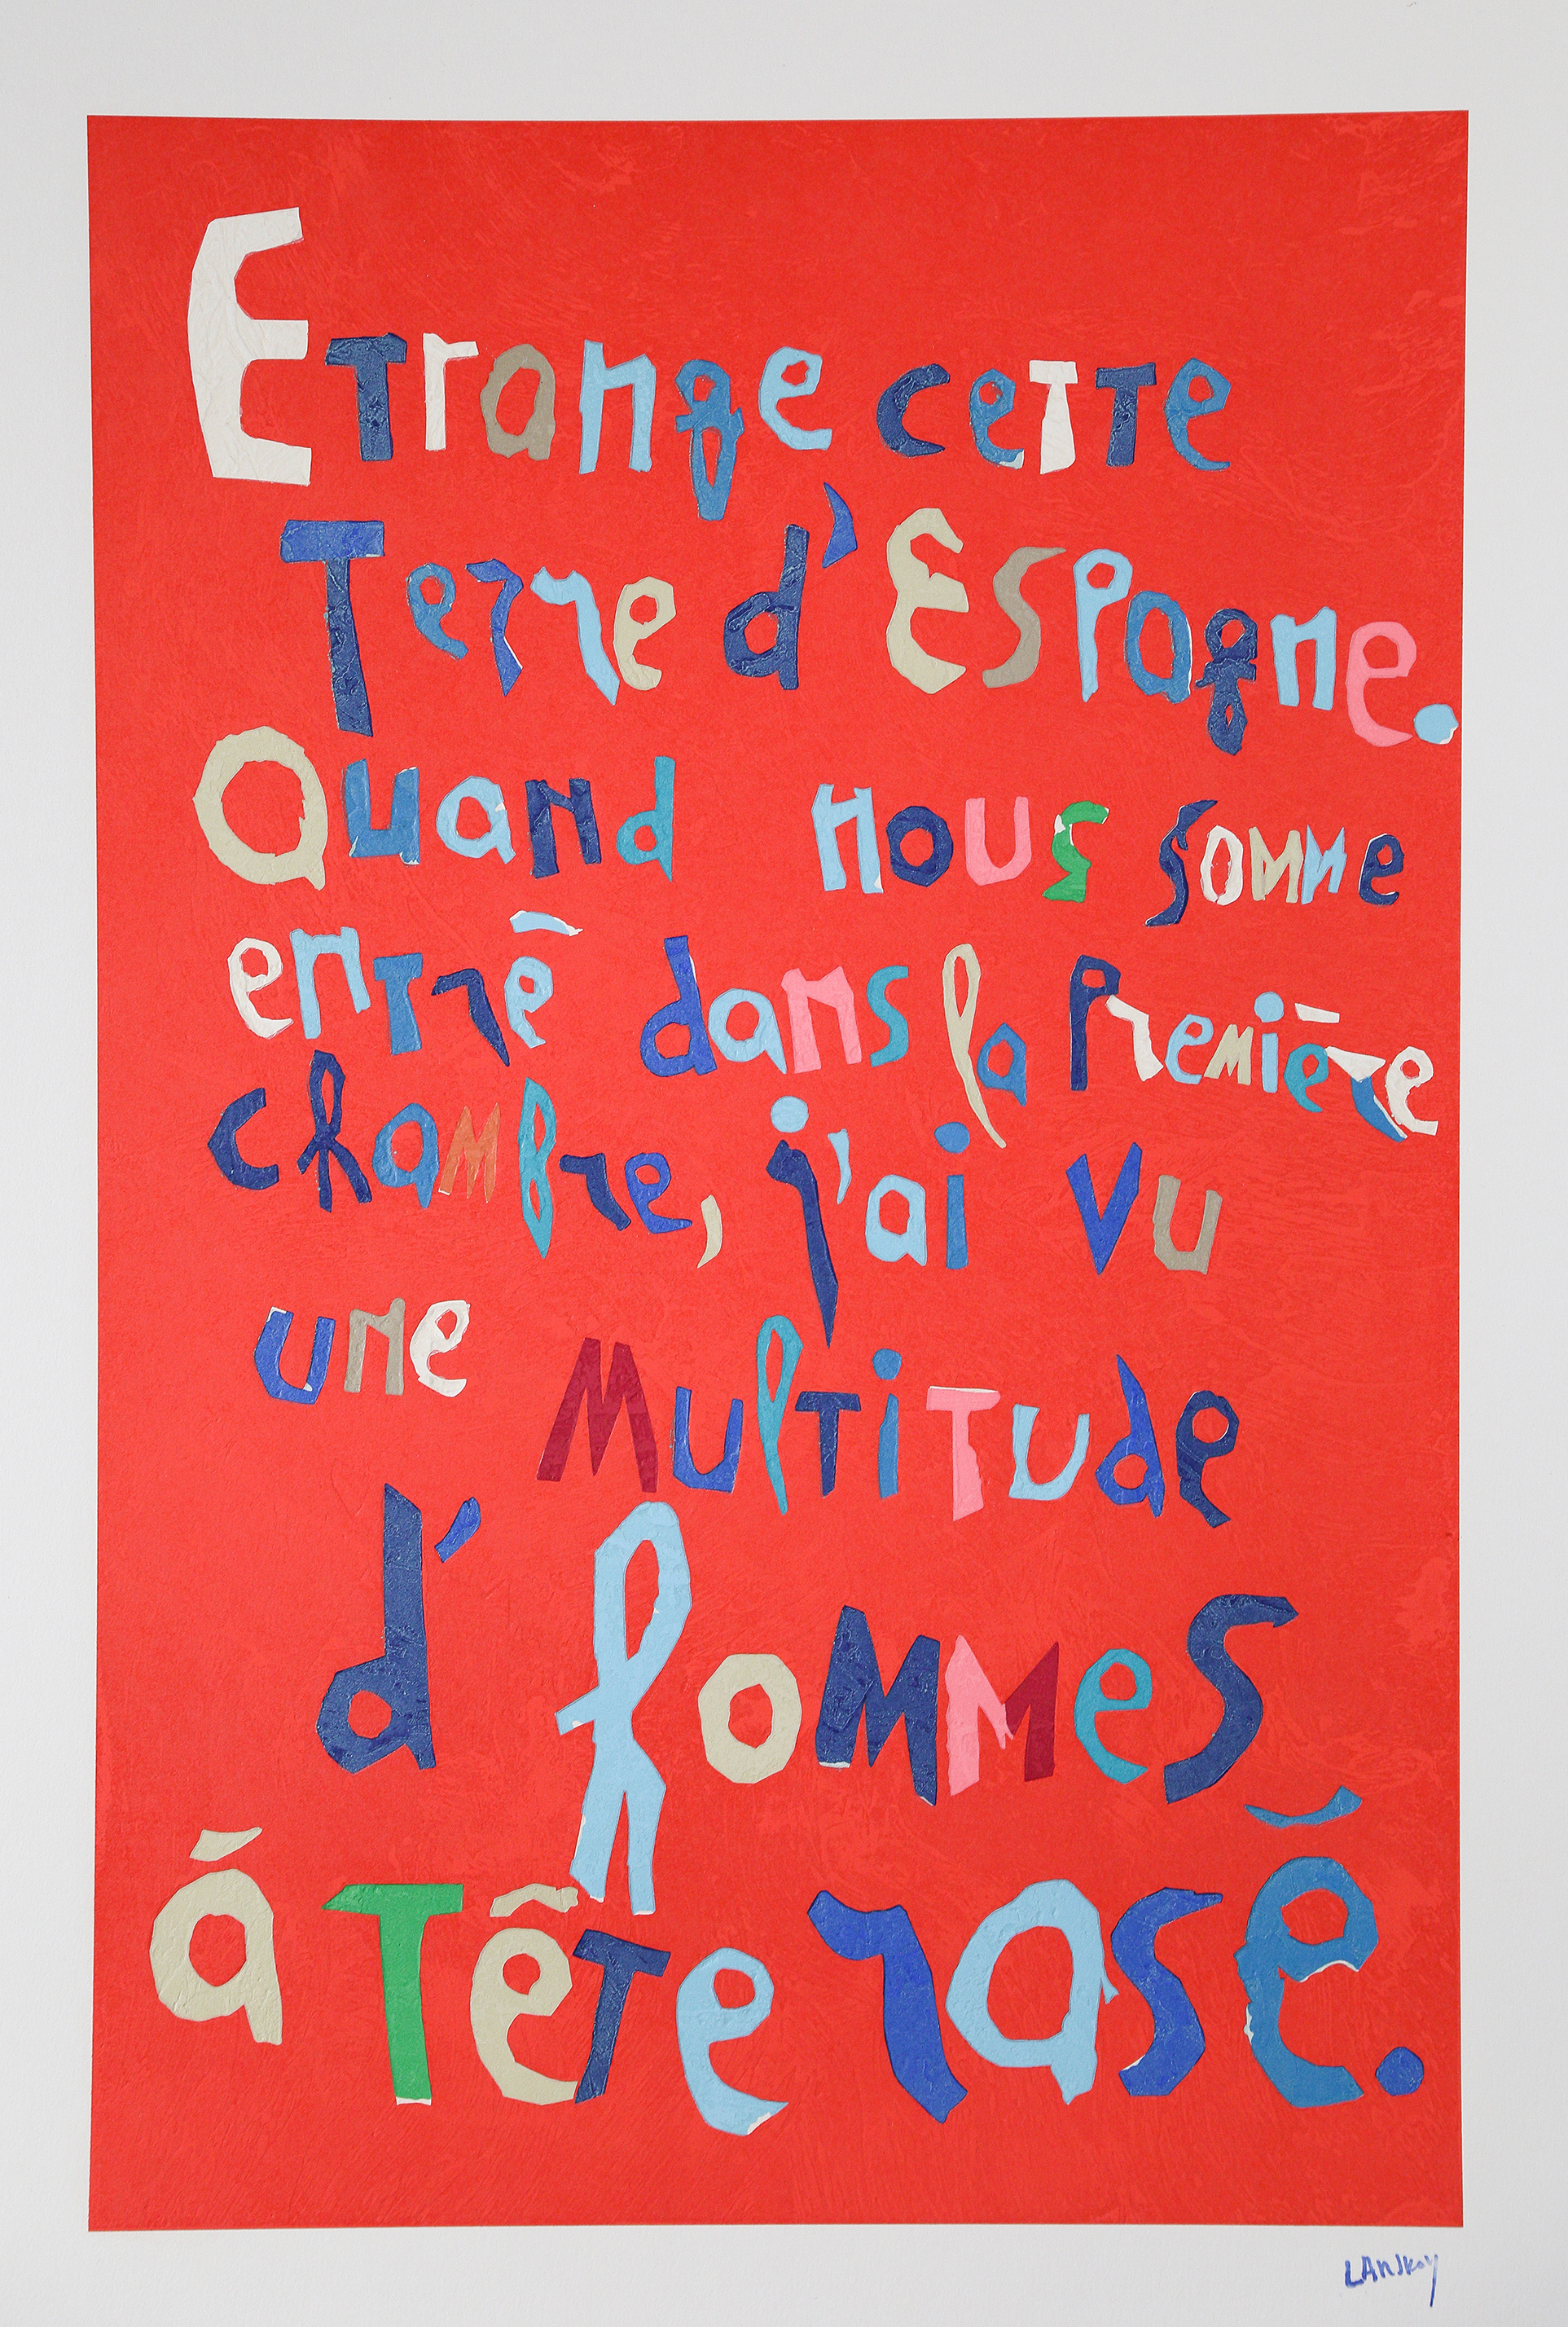 Etrange cette
Terre d'Espagne.
Quand nous somme
entré dans la Première
chambre, j'ai vu
une Multitude
d'hommes
á tête rasé.
LANSKOY